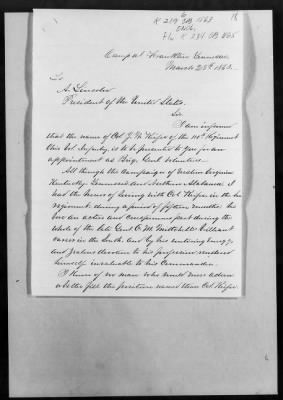 K 219 CB 1863
Camp at Franklin Tennessee
March 25th 1863.
To
A. Lincoln
President of the United States.
Sir
I am informed
that the name of Col. J. W. Keifer of the 110th Regiment
Ohio Vol. Infantry, is to be presented to you for an
appointment as Brig. Genl. Volunteers.
All through the Campaign of Western Virginia
Kentucky Tennessee and Northern Alabama I
had the honor of being with Col. Keifer in the
regiment, during a period of fifteen months he
bore an active and conspicuous part during the
whole of the late Genl. O. M. Mitchell's brilliant
career in the South. and by his untiring energy
and zealous devotion to his profession rendered
himself invaluable to his Commander.
I know of no man who would more adorn
or better fill the position named than Col. Keifer.